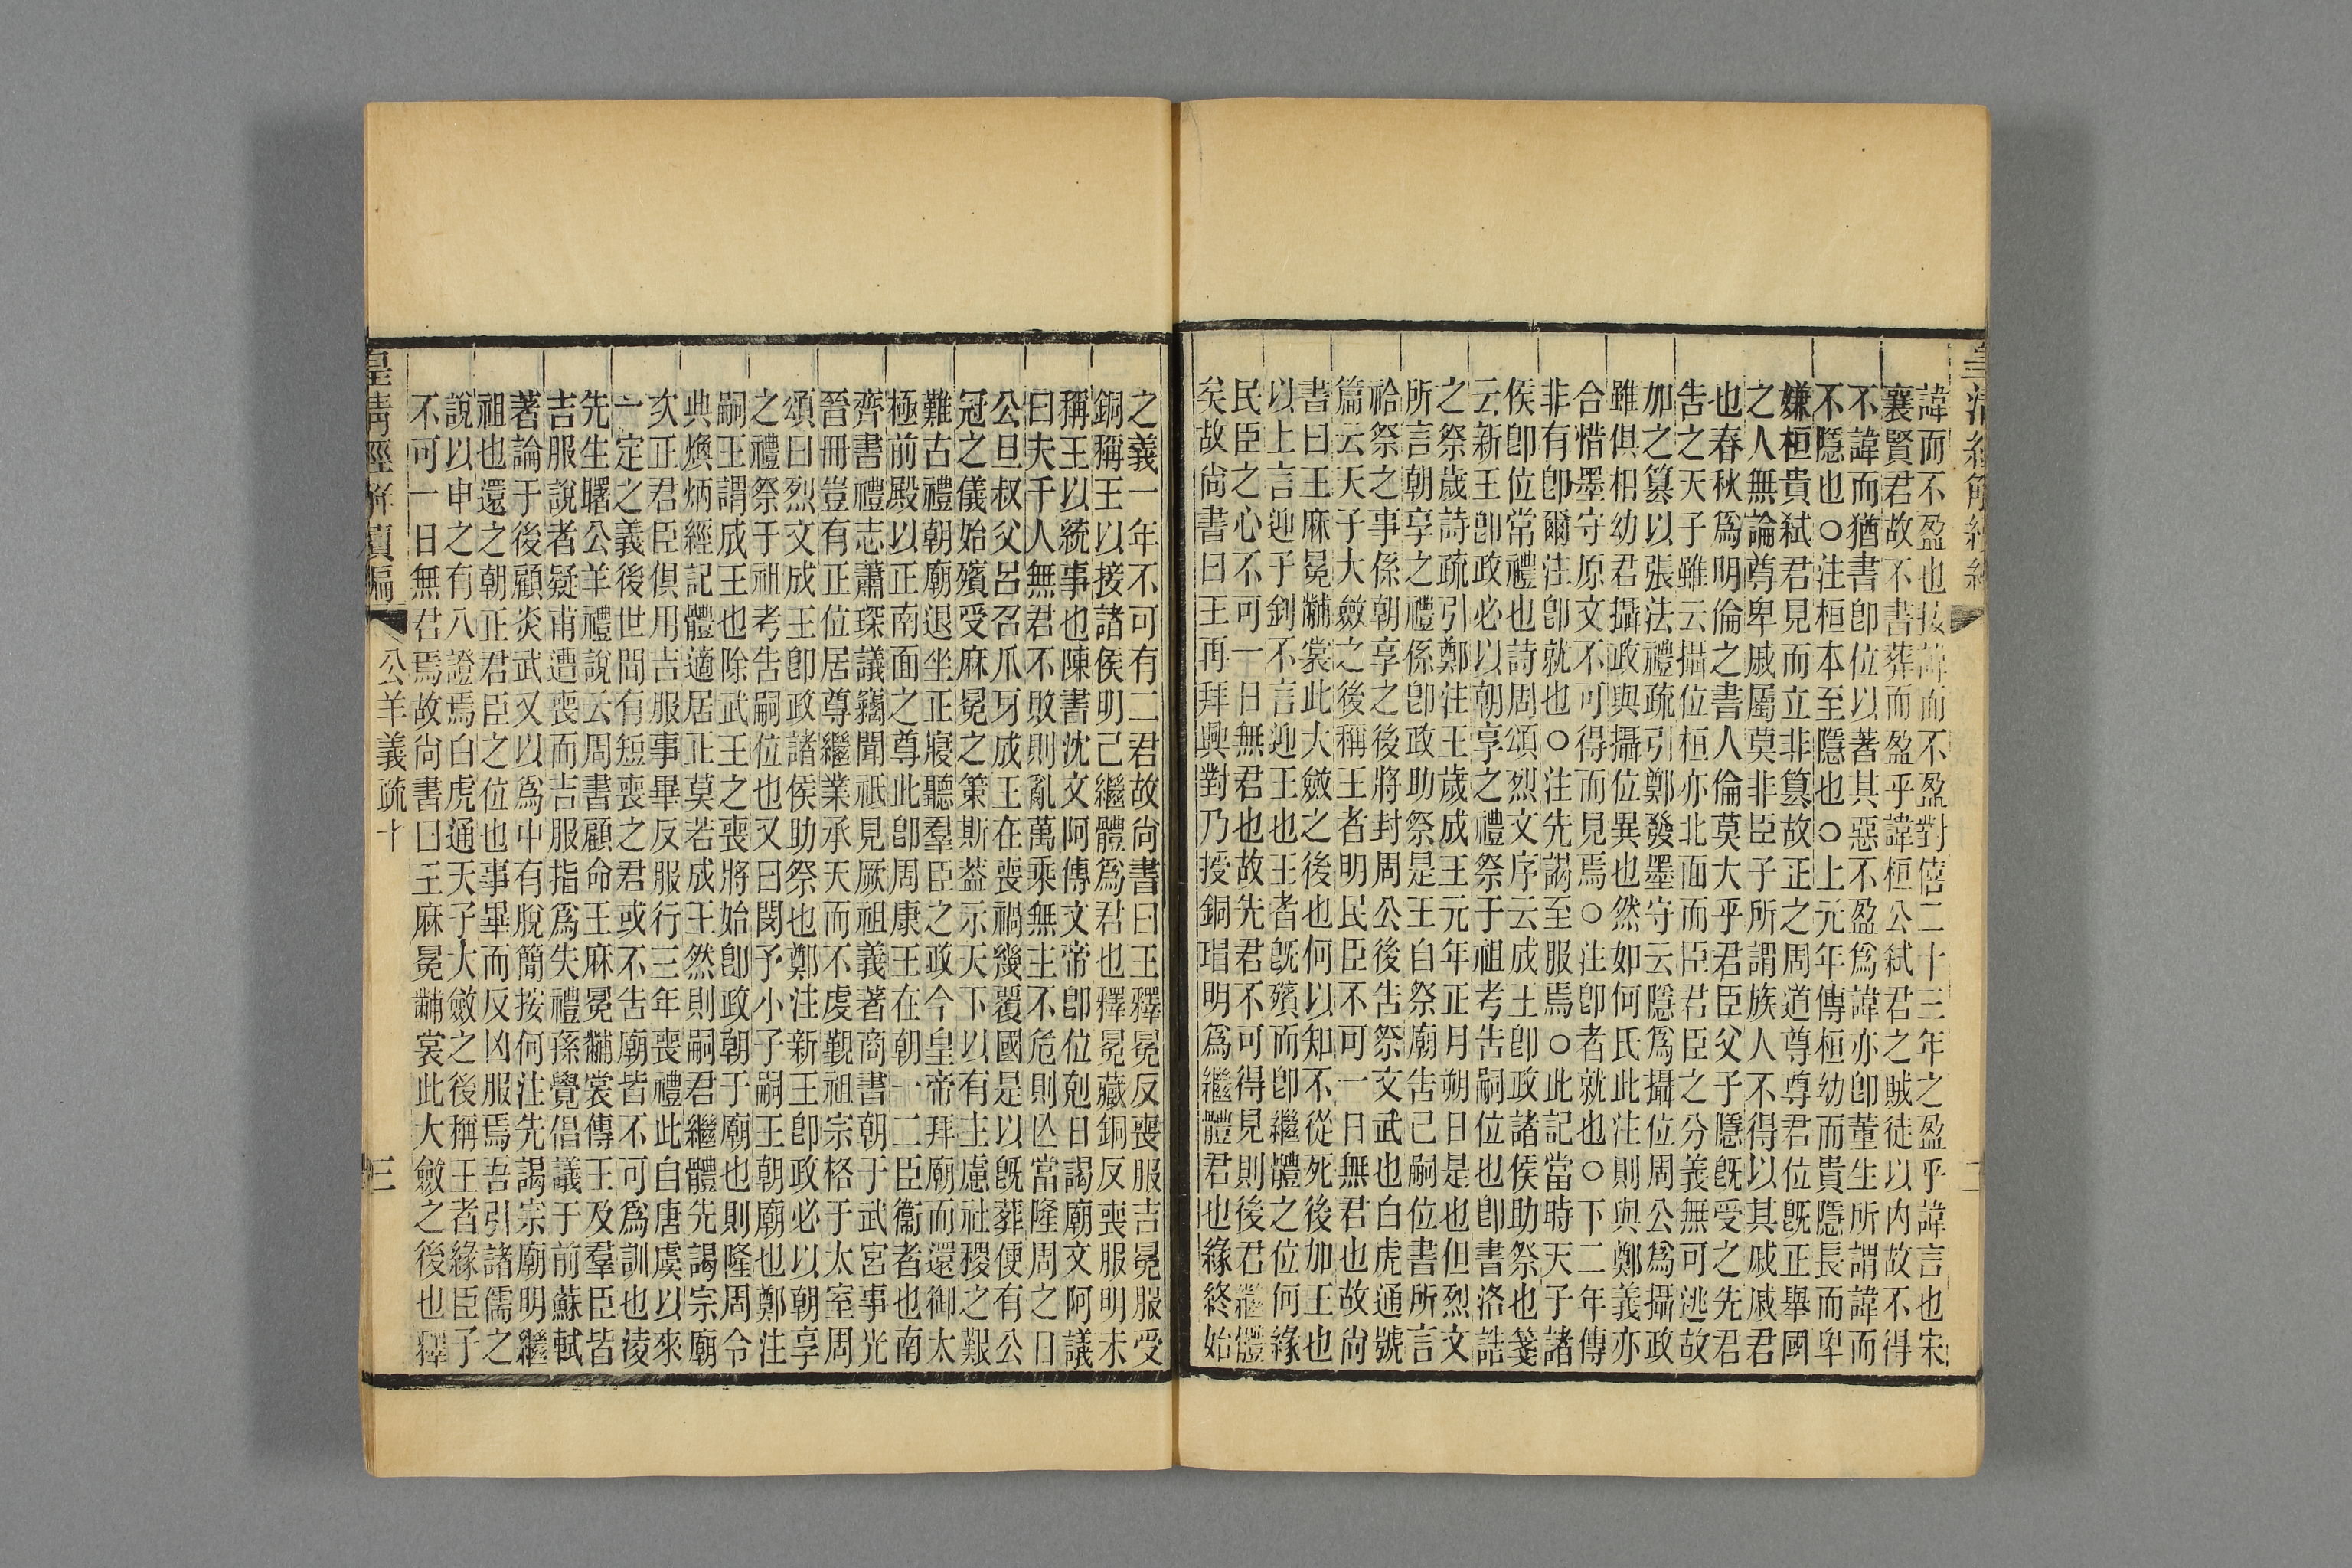 皇清經解續編
二
諱而不盈也按諱而不盈對僖二十三年之盈乎諱言也宋
襄賢君故不書葬而盈乎諱桓公弑君之賊徒以內故不得
不諱而猶書卽位以著其惡不盈爲諱亦卽董生所謂諱而
不隱也○注桓本至隱也○上元年傳桓幼而貴隱長而卑
嫌桓貴弑君見而立非篡故正之周道尊尊君位旣正舉國
之人無論尊卑戚屬莫非臣子所謂族人不得以其戚戚君
也春秋爲明倫之書人倫莫大乎君臣父子隱旣受之先君
告之天子雖云攝位桓亦北面而臣君臣之分義無可逃故
加之篡以張法禮疏引鄭發墨守云隱爲攝位周公爲攝政
雖俱相幼君攝政與攝位異也然如何氏此注則與鄭義亦
合惜墨守原文不可得而見焉○注卽者就也○下二年傳
非有卽爾注卽就也○注先謁至服焉○此記當時天子諸
侯卽位常禮也詩周頌烈文序云成王卽政諸侯助祭也箋
云新王卽政必以朝享之禮祭于祖考告嗣位也卽書洛誥
之祭歲詩疏引鄭注王歲成王元年正月朔日是也但烈文
所言朝享之禮係卽政助祭是王自祭廟告己嗣位書所言
祫祭之事係朝享之後將封周公後告祭文武也白虎通號
篇云天子大斂之後稱王者明民臣不可一日無君也故尚
書曰王麻冕黼裳此大斂之後也何以知不從死後加王也
以上言迎于釗不言迎王也王者旣殯而卽繼體之位何緣
民臣之心不可一日無君也故先君不可得見則後君繼體
矣故尚書曰王再拜興對乃授銅瑁明爲繼體君也緣終始
之義一年不可有二君故尚書曰王釋冕反喪服吉冕服受
銅稱王以接諸侯明己繼體爲君也釋冕藏銅反喪服明未
稱王以統事也陳書沈文阿傳文帝卽位剋日謁廟文阿議
曰夫千人無君不敗則亂萬乘無主不危則亾當隆周之日
公旦叔父呂召爪牙成王在喪禍幾覆國是以旣葬便有公
冠之儀始殯受麻冕之策斯葢示天下以有主慮社稷之艱
難古禮朝廟退坐正寢聽羣臣之政今皇帝拜廟而還御太
極前殿以正南面之尊此卽周康王在朝一二臣衞者也南
齊書禮志蕭琛議竊聞祗見厥祖義著商書朝于武宮事光
晉冊豈有正位居尊繼業承天而不虔覲祖宗格于太室周
頌曰烈文成王卽政諸侯助祭也鄭注新王卽政必以朝享
之禮祭于祖考告嗣位也又曰閔予小子嗣王朝廟也鄭注
嗣王謂成王也除武王之喪將始卽政朝于廟也則隆周令
典煥炳經記體適居正莫若成王然則嗣君繼體先謁宗廟
次正君臣俱用吉服事畢反服行三年喪禮此自唐虞以來
一定之義後世間有短喪之君或不告廟皆不可爲訓也淩
先生曙公羊禮說云周書顧命王麻冕黼裳傳王及羣臣皆
吉服說者疑甫遭喪而吉服指爲失禮孫覺倡議于前蘇軾
著論于後顧炎武又以爲中有脫簡按何注先謁宗廟明繼
祖也還之朝正君臣之位也事畢而反凶服焉吾引諸儒之
說以申之有八證焉白虎通天子大斂之後稱王者緣臣子
不可一日無君焉故尚書曰王麻冕黼裳此大斂之後也釋
皇淸經解續編
公羊義疏十
三